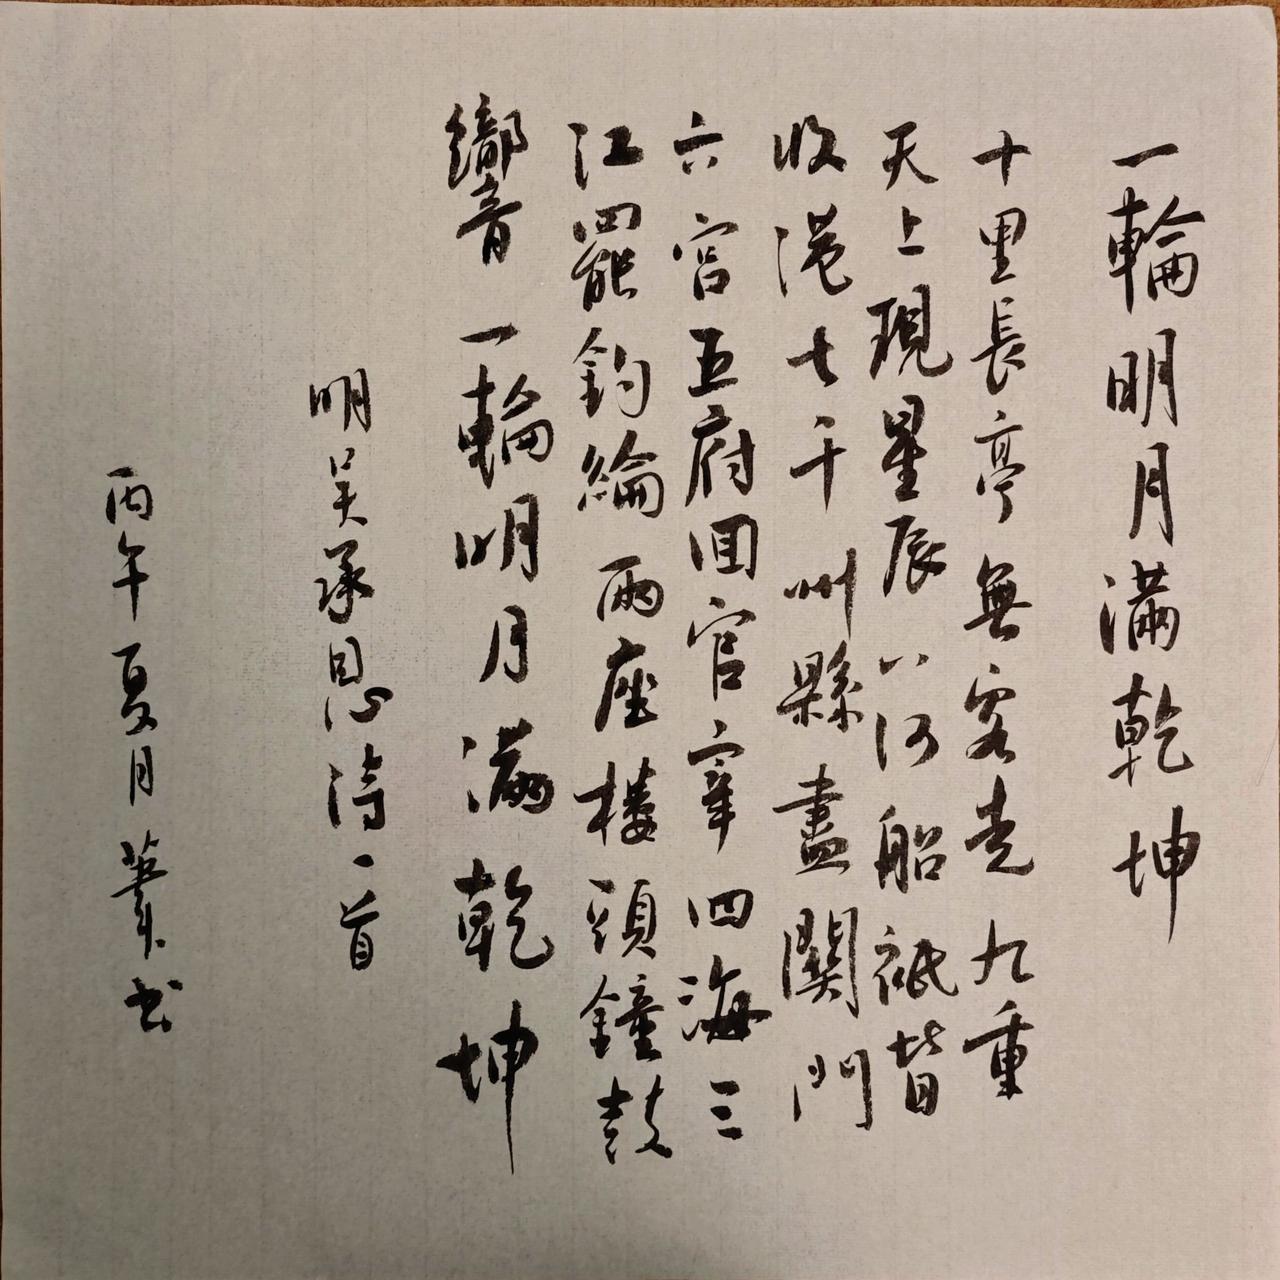 一輪明月滿乾坤
十里長亭無客走九重
天上現星辰八河船祇皆
收港七千州縣盡關門
六宮五府回官宰四海三
江罷釣綸兩座樓頭鐘鼓
響一輪明月滿乾坤
明吴承恩詩一首
丙午夏月 書